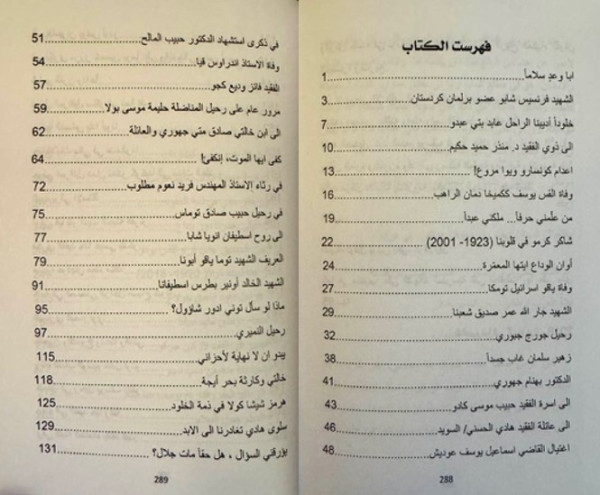 فهرست الكتاب
ابا وعدٍ سلاماً.....1
الشهيد فرنسيس شابو عضو برلمان كردستان.....3
خلوداً أديبنا الراحل عابد بتي عبدو.....7
الى ذوي الفقيد د. منذر حميد حكيم.....10
اعدام كونسارو وبوا مروع!.....13
وفاة القس يوسف ككميخا دمان الراهب.....16
من علّمني حرفاً... ملكني عبداً.....19
شاكر كرمو في قلوبنا (1923- 2001).....22
أوان الوداع ايتها المعمّرة.....24
وفاة ياقو اسرائيل تومكا.....27
الشهيد جار الله عمر صديق شعبنا.....29
رحيل جورج جبوري.....32
زهير سلمان غاب جسداً.....38
الدكتور بهنام جهوري.....41
الى اسرة الفقيد حبيب موسى كادو.....43
الى عائلة الفقيد هادي الحسني/ السويد.....46
اغتيال القاضي اسماعيل يوسف عوديش.....48
288
في ذكرى استشهاد الدكتور حبيب المالح.....51
وفاة الاستاذ اندراوس قيا.....54
الفقيد فائز وديع كجو.....57
مرور عام على رحيل المناضلة حليمة موسى بولا.....59
الى ابن خالتي صادق متي جهوري والعائلة.....62
كفى ايها الموت، إنكفى!.....64
في رثاء الاستاذ المهندس فريد نعوم مطلوب.....72
في رحيل حبيب صادق توماس.....75
الى روح اسطيفان انويا شابا.....77
العريف الشهيد توما ياقو أبونا.....79
الشهيد الخالد أونير بطرس اسطيفانا.....91
ماذا لو سأل توني ادور شاؤول؟.....95
رحيل النميري.....97
يبدو ان لا نهاية لأحزاني.....115
خالتي وكارثة بحر أيجة.....118
هرمز شيشا كولا في ذمة الخلود.....125
سلوى هادي تغادرنا الى الابد.....129
يؤرقني السؤال ، هل حقاً مات جلال؟.....131
289